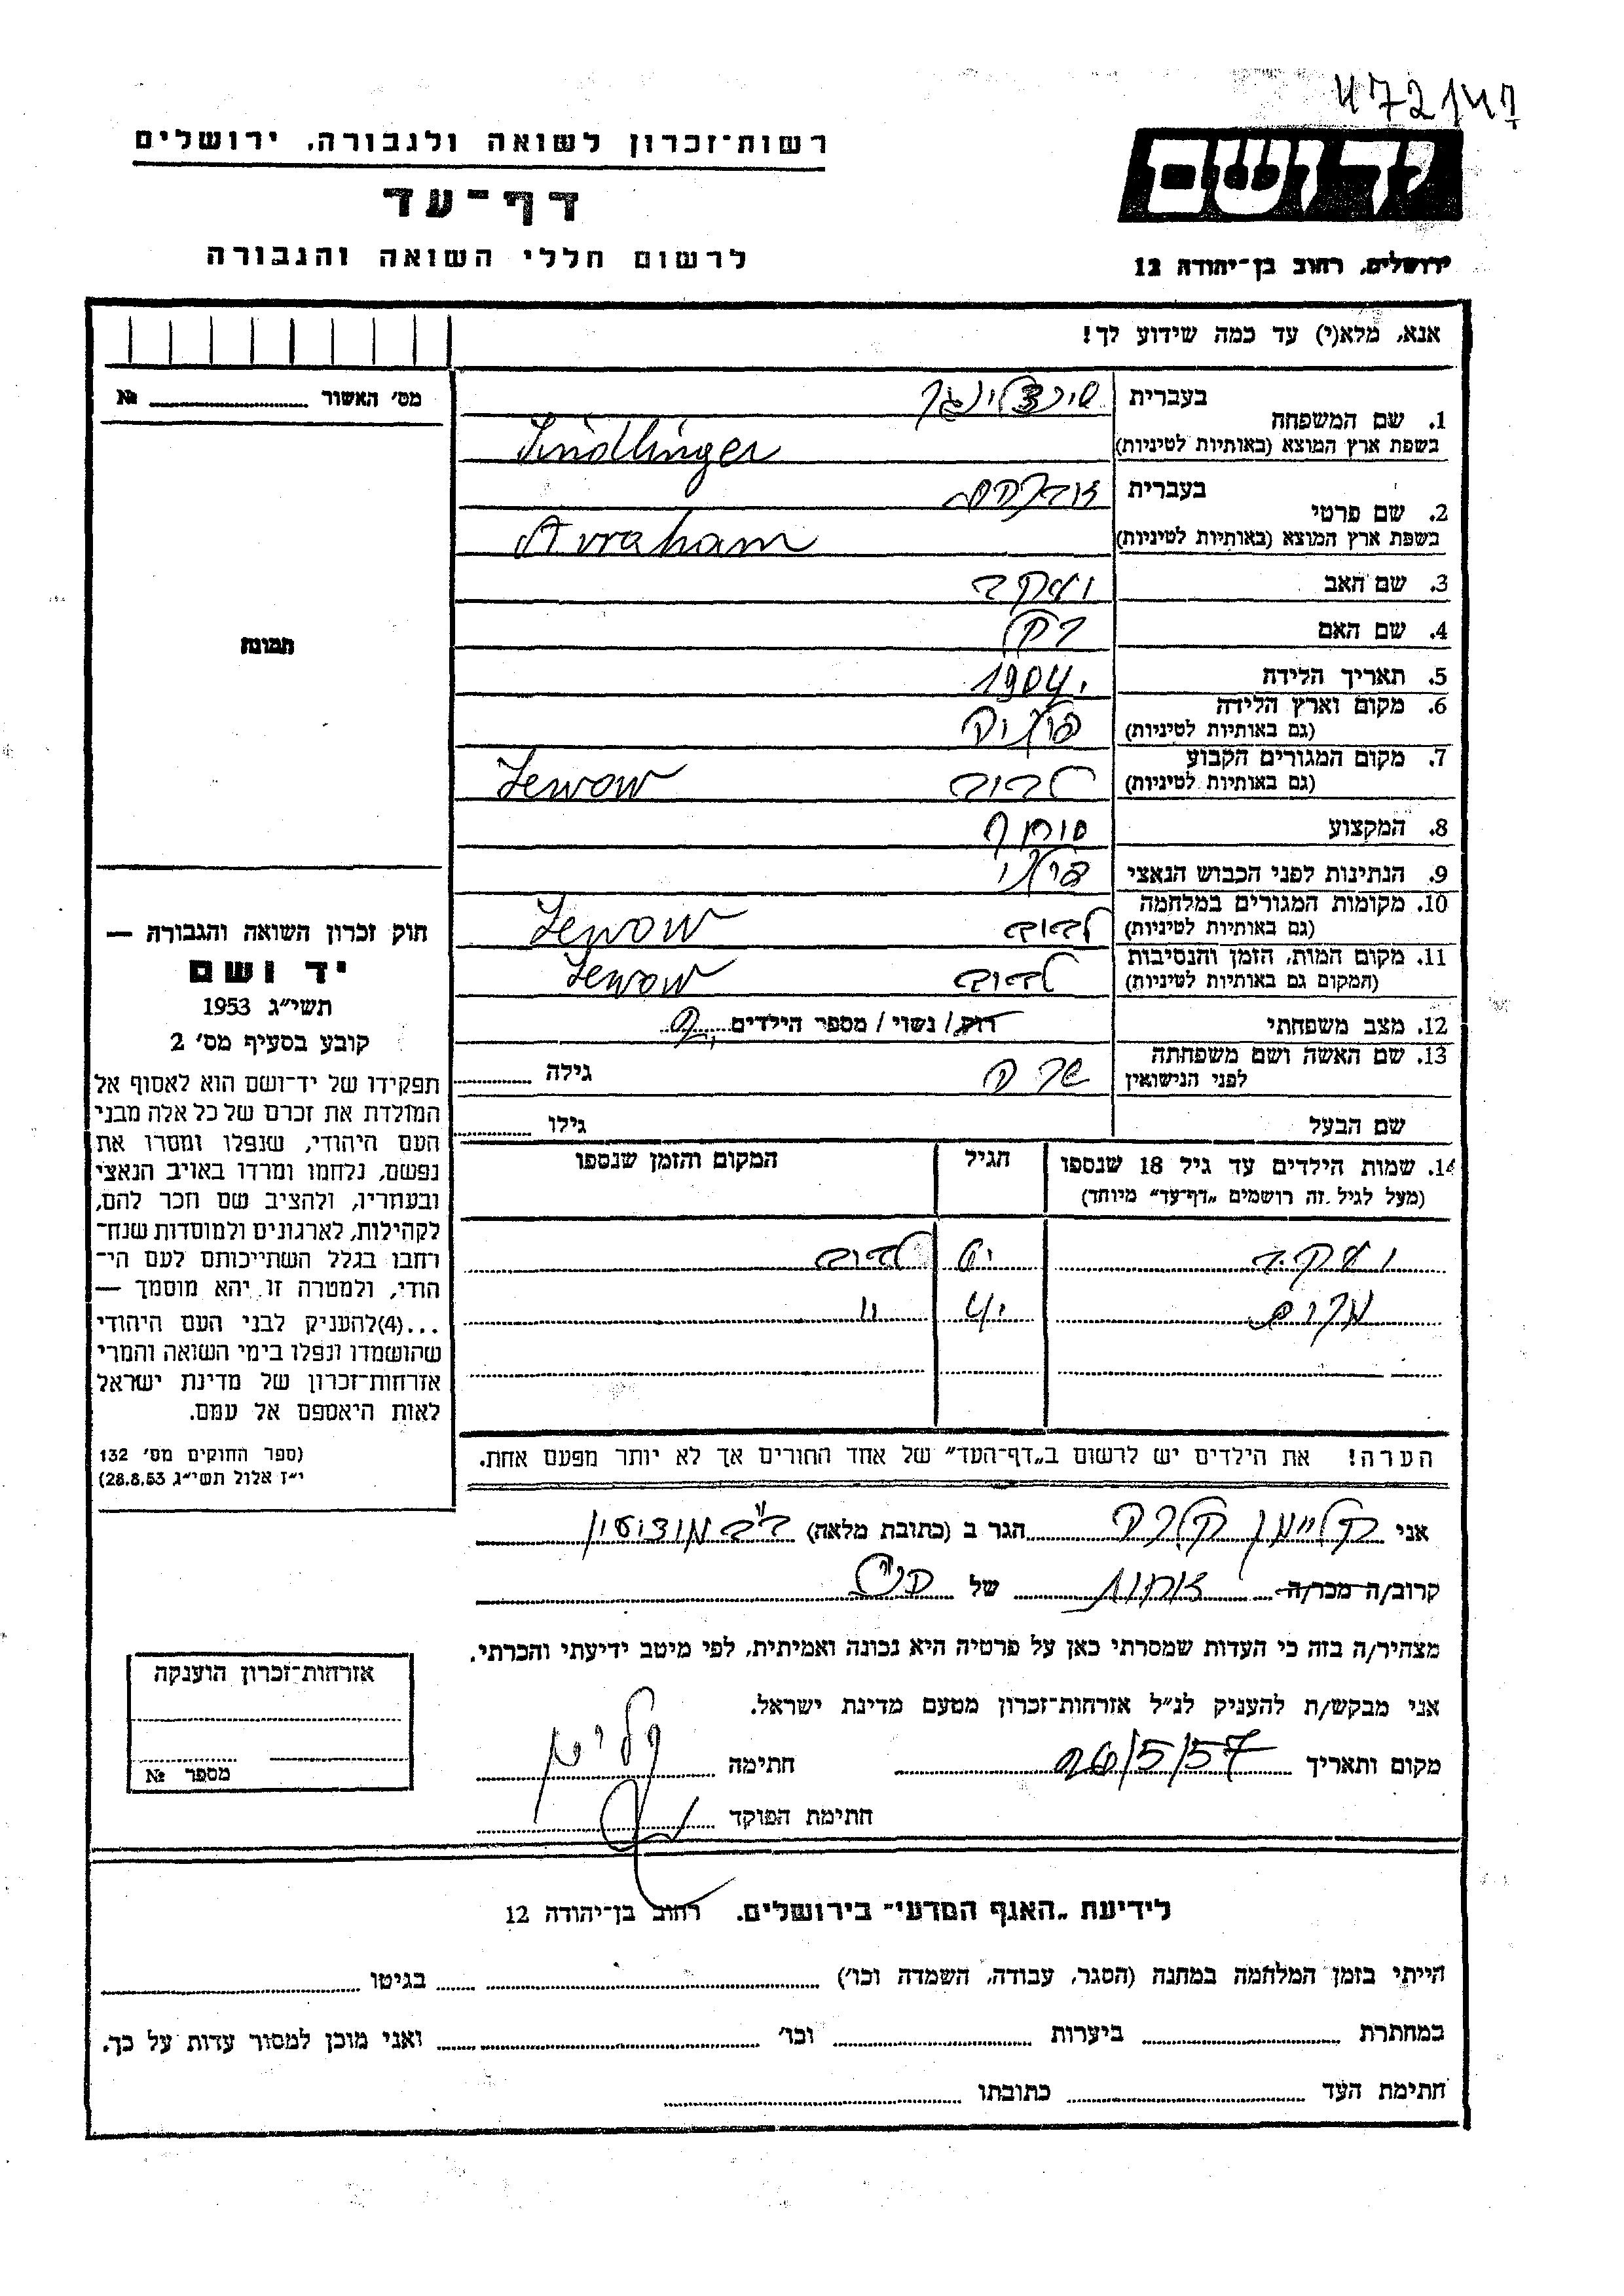 472/47
רשות-זכרון לשואה ולגבורה, ירושלים
דף-עד
לרשום חללי השואה והגבורה
יד ושם
ירושלים, רחוב בן-יהודה 12
אנא, מלא(י) עד כמה שידוע לך!
מס' האשור №
1. שם המשפחה
בעברית
בשפת ארץ המוצא (באותיות לטיניות) Sindlinger
2. שם פרטי
בעברית אברהם
בשפת ארץ המוצא (באותיות לטיניות) Avraham
3. שם האב יעקב
4. שם האם
5. תאריך הלידה 1904
6. מקום וארץ הלידה
(גם באותיות לטיניות)
7. מקום המגורים הקבוע לבוב Lewow
(גם באותיות לטיניות)
8. המקצוע סוחר
9. הנתינות לפני הכבוש הנאצי פולני
10. מקומות המגורים במלחמה לבוב Lewow
(גם באותיות לטיניות)
11. מקום המות, הזמן והנסיבות לבוב Lewow
(המקום גם באותיות לטיניות)
12. מצב משפחתי רוק / נשוי / מספר הילדים 2
13. שם האשה ושם משפחתה שרה גילה
לפני הנישואין
שם הבעל גילו
14. שמות הילדים עד גיל 18 שנספו הגיל המקום והזמן שנספו
(מעל לגיל זה רושמים „דף-עד" מיוחד)
יעקב לבוב
מרים 14 "
הערה! את הילדים יש לרשום ב„דף-העד" של אחד ההורים אך לא יותר מפעם אחת.
תמונה
חוק זכרון השואה והגבורה —
יד ושם
תשי"ג 1953
קובע בסעיף מס' 2
תפקידו של יד-ושם הוא לאסוף אל
המולדת את זכרם של כל אלה מבני
העם היהודי, שנפלו ומסרו את
נפשם, נלחמו ומרדו באויב הנאצי
ובעוזריו, ולהציב שם וזכר להם,
לקהילות, לארגונים ולמוסדות שנח-
רבו בגלל השתייכותם לעם הי-
הודי, ולמטרה זו יהא מוסמך —
...(4)להעניק לבני העם היהודי
שהושמדו ונפלו בימי השואה והמרי
אזרחות-זכרון של מדינת ישראל
לאות היאספם אל עמם.
(ספר החוקים מס' 132
י"ז אלול תשי"ג 28.8.53)
אני קליימן קלרה הגר ב (כתובת מלאה)
קרוב/ה מכר/ה אחות של הנ"ל
מצהיר/ה בזה כי העדות שמסרתי כאן על פרטיה היא נכונה ואמיתית, לפי מיטב ידיעתי והכרתי.
אני מבקש/ת להעניק לנ"ל אזרחות-זכרון מטעם מדינת ישראל.
מקום ותאריך 26/5/57 חתימה
חתימת הפוקד
אזרחות-זכרון הוענקה
מספר №
לידיעת „האגף המדעי" בירושלים. רחוב בן-יהודה 12
הייתי בזמן המלחמה במחנה (הסגר, עבודה, השמדה וכו') בגיטו
במחתרת ביערות וכו' ואני מוכן למסור עדות על כך.
חתימת העד כתובתו